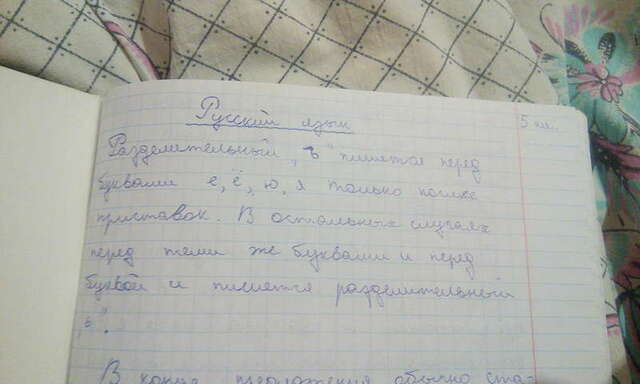 Русский язык
5 кл.
Разделительный „ъ" пишется перед
буквами е, ё, ю, я только после
приставок. В остальных случаях
перед теми же буквами и перед
буквой и пишется разделительный
„ь".
В конце предложения обычно ста-